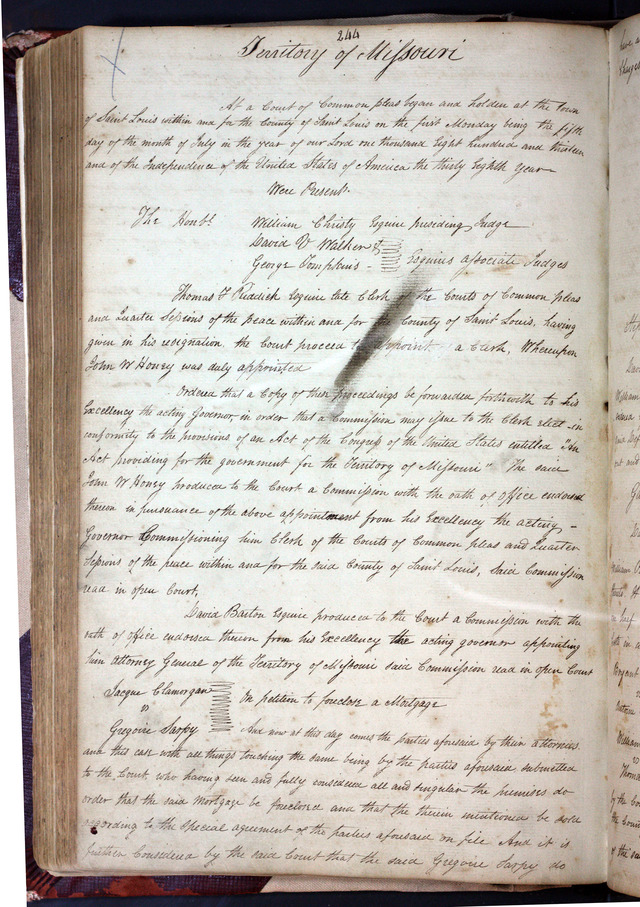 244
Territory of Missouri
At a Court of Common pleas began and holden at the town
of Saint Louis within and for the County of Saint Louis on the first Monday being the fifth
day of the month of July in the year of our Lord one thousand Eight hundred and thirteen
and of the Independence of the United States of America the thirty Eighth Year
Were Present.
The Honbl. William Christy Esquire presiding Judge
David V Walker &
George Tompkins - Esquires associate Judges
Thomas F Riddick Esquire late Clerk of the Courts of Common pleas
and Quarter Sessions of the peace within and for the County of Saint Louis, having
given in his resignation the Court proceed to appoint a Clerk, Whereupon
John W Honey was duly appointed
Ordered that a Copy of these proceedings be forwarded forthwith to his
Excellency the acting Governor, in order that a Commission may issue to the Clerk elect in
conformity to the provisions of an Act of the Congress of the United States entitled "An
Act providing for the government for the Territory of Missouri" The said
John W Honey produced to the Court a Commission with the oath of office endorsed
thereon in pursuance of the above appointment from his Excellency the acting -
Governor Commissioning him Clerk of the Courts of Common pleas and Quarter
Sessions of the peace within and for the said County of Saint Louis, Said Commission
read in open Court,
David Barton Esquire produced to the Court a Commission with the
oath of office endorsed thereon from his Excellency the acting governor appointing
him Attorney General of the Territory of Missouri said Commission read in open Court
Jacque Clamorgan
vs
On petition to foreclose a Mortgage
Gregoire Sarpy And now at this day comes the parties aforesaid by their attornies
and this case with all things touching the same being by the parties aforesaid submitted
to the Court, who having seen and fully considered all and singular the premises do
order that the said Mortgage be foreclosed and that the therein mentioned be sold
according to the special agreement of the parties aforesaid on file And it is
further Considered by the said Court that the said Gregoire Sarpy do